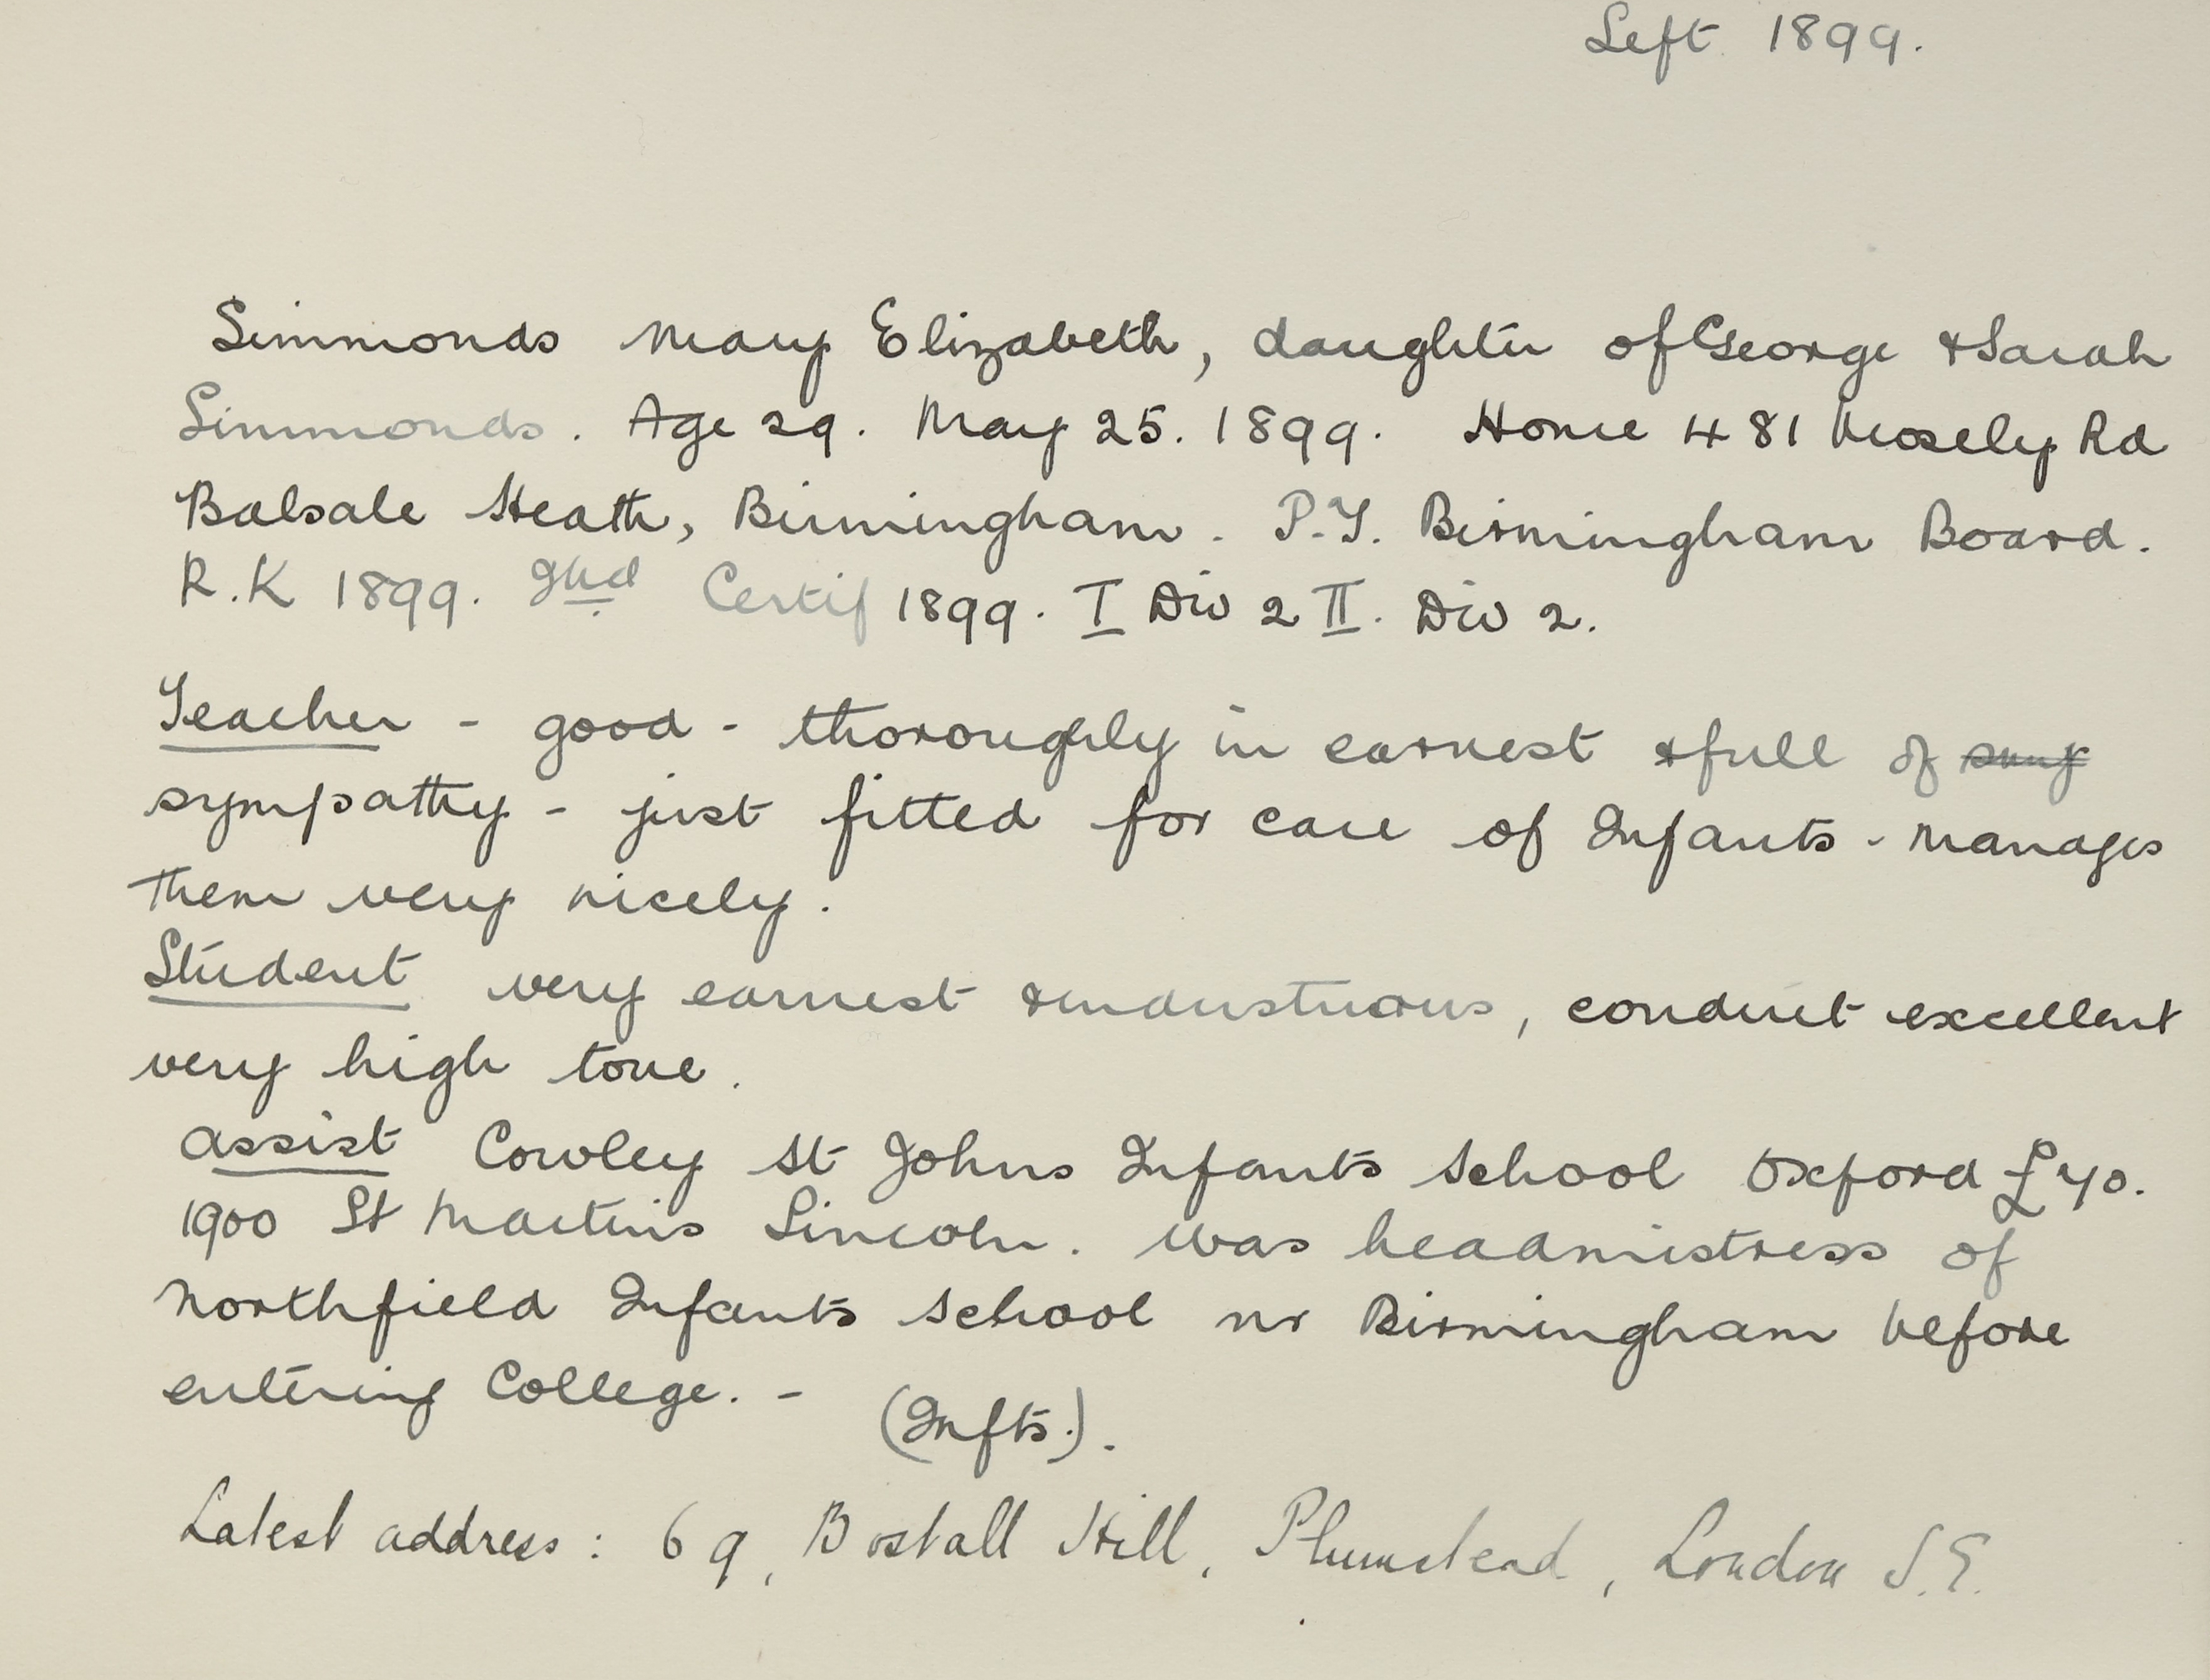 Left 1899.
Simmonds Mary Elizabeth, daughter of George & Sarah
Simmonds. Age 29. May 25. 1899. Home 481 Mosely Rd
Balsale Heath, Birmingham. P.T. Birmingham Board.
R.K 1899. Certif 1899. I Div 2 II. Div 2.
Teacher - good - thoroughly in earnest & full of
sympathy - just fitted for care of Infants - manages
them very nicely.
Student very earnest & industrious, conduct excellent
very high tone.
Assist Cowley St Johns Infants School Oxford
1900 St Martins Lincoln. Was headmistress of
Northfield Infants School nr Birmingham before
entering College. -
(Infts.).
Latest address: 69, Bostall Hill, Plumstead, London S.E.